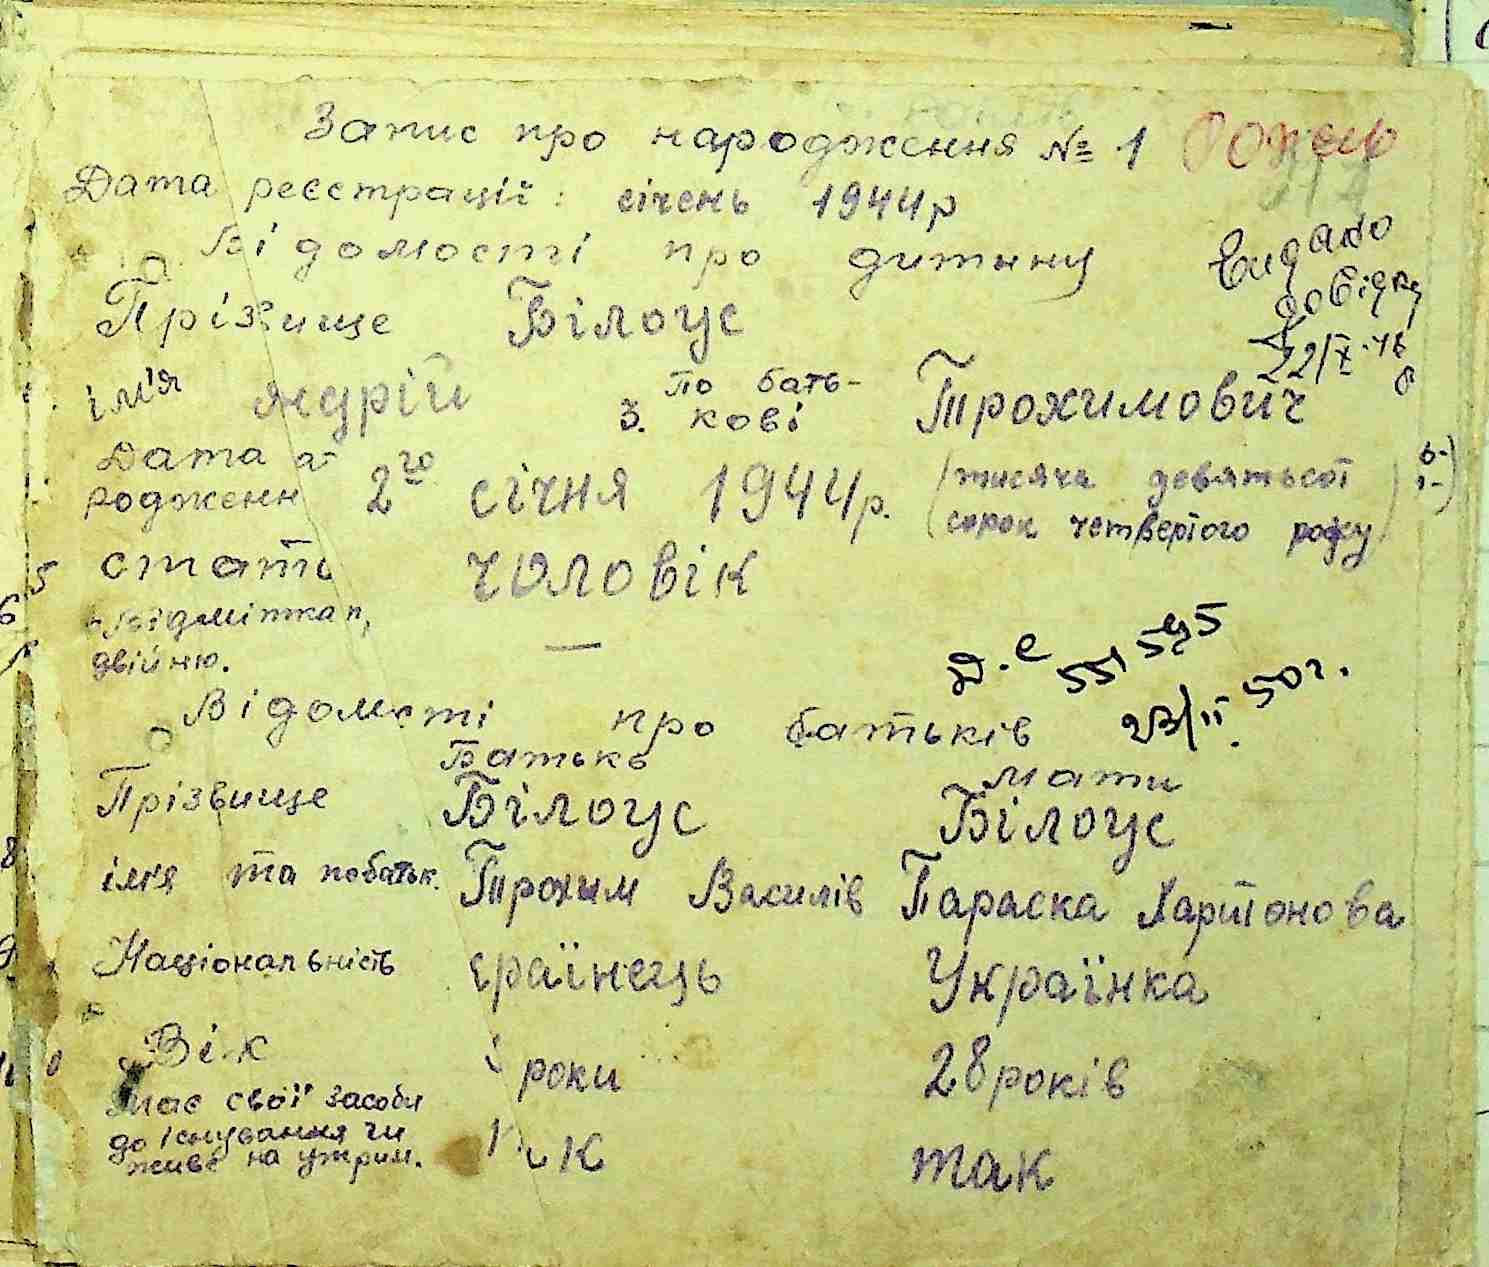 Запис про народження № 1
Дата реєстрації: січень 1944р
Відомості про дитину
Видано
довідку
22/X-46
Прізвище Білоус
ім'я Андрій 3. По бать-
кові Трохимович
Дата а-
родженн 2го січня 1944р. (тисяча девятьсот
сорок четвертого року)
стать чоловік
Відмітка п,
двійню. —
551 525
23/II 50г.
Відомості про батьків
Батько Мати
Прізвище Білоус Білоус
ім'я та побатьк. Трохим Василів Параска Харитонова
Національність країнець Українка
Вік роки 28 років
має свої засоби
до існування чи
живе на утрим. так